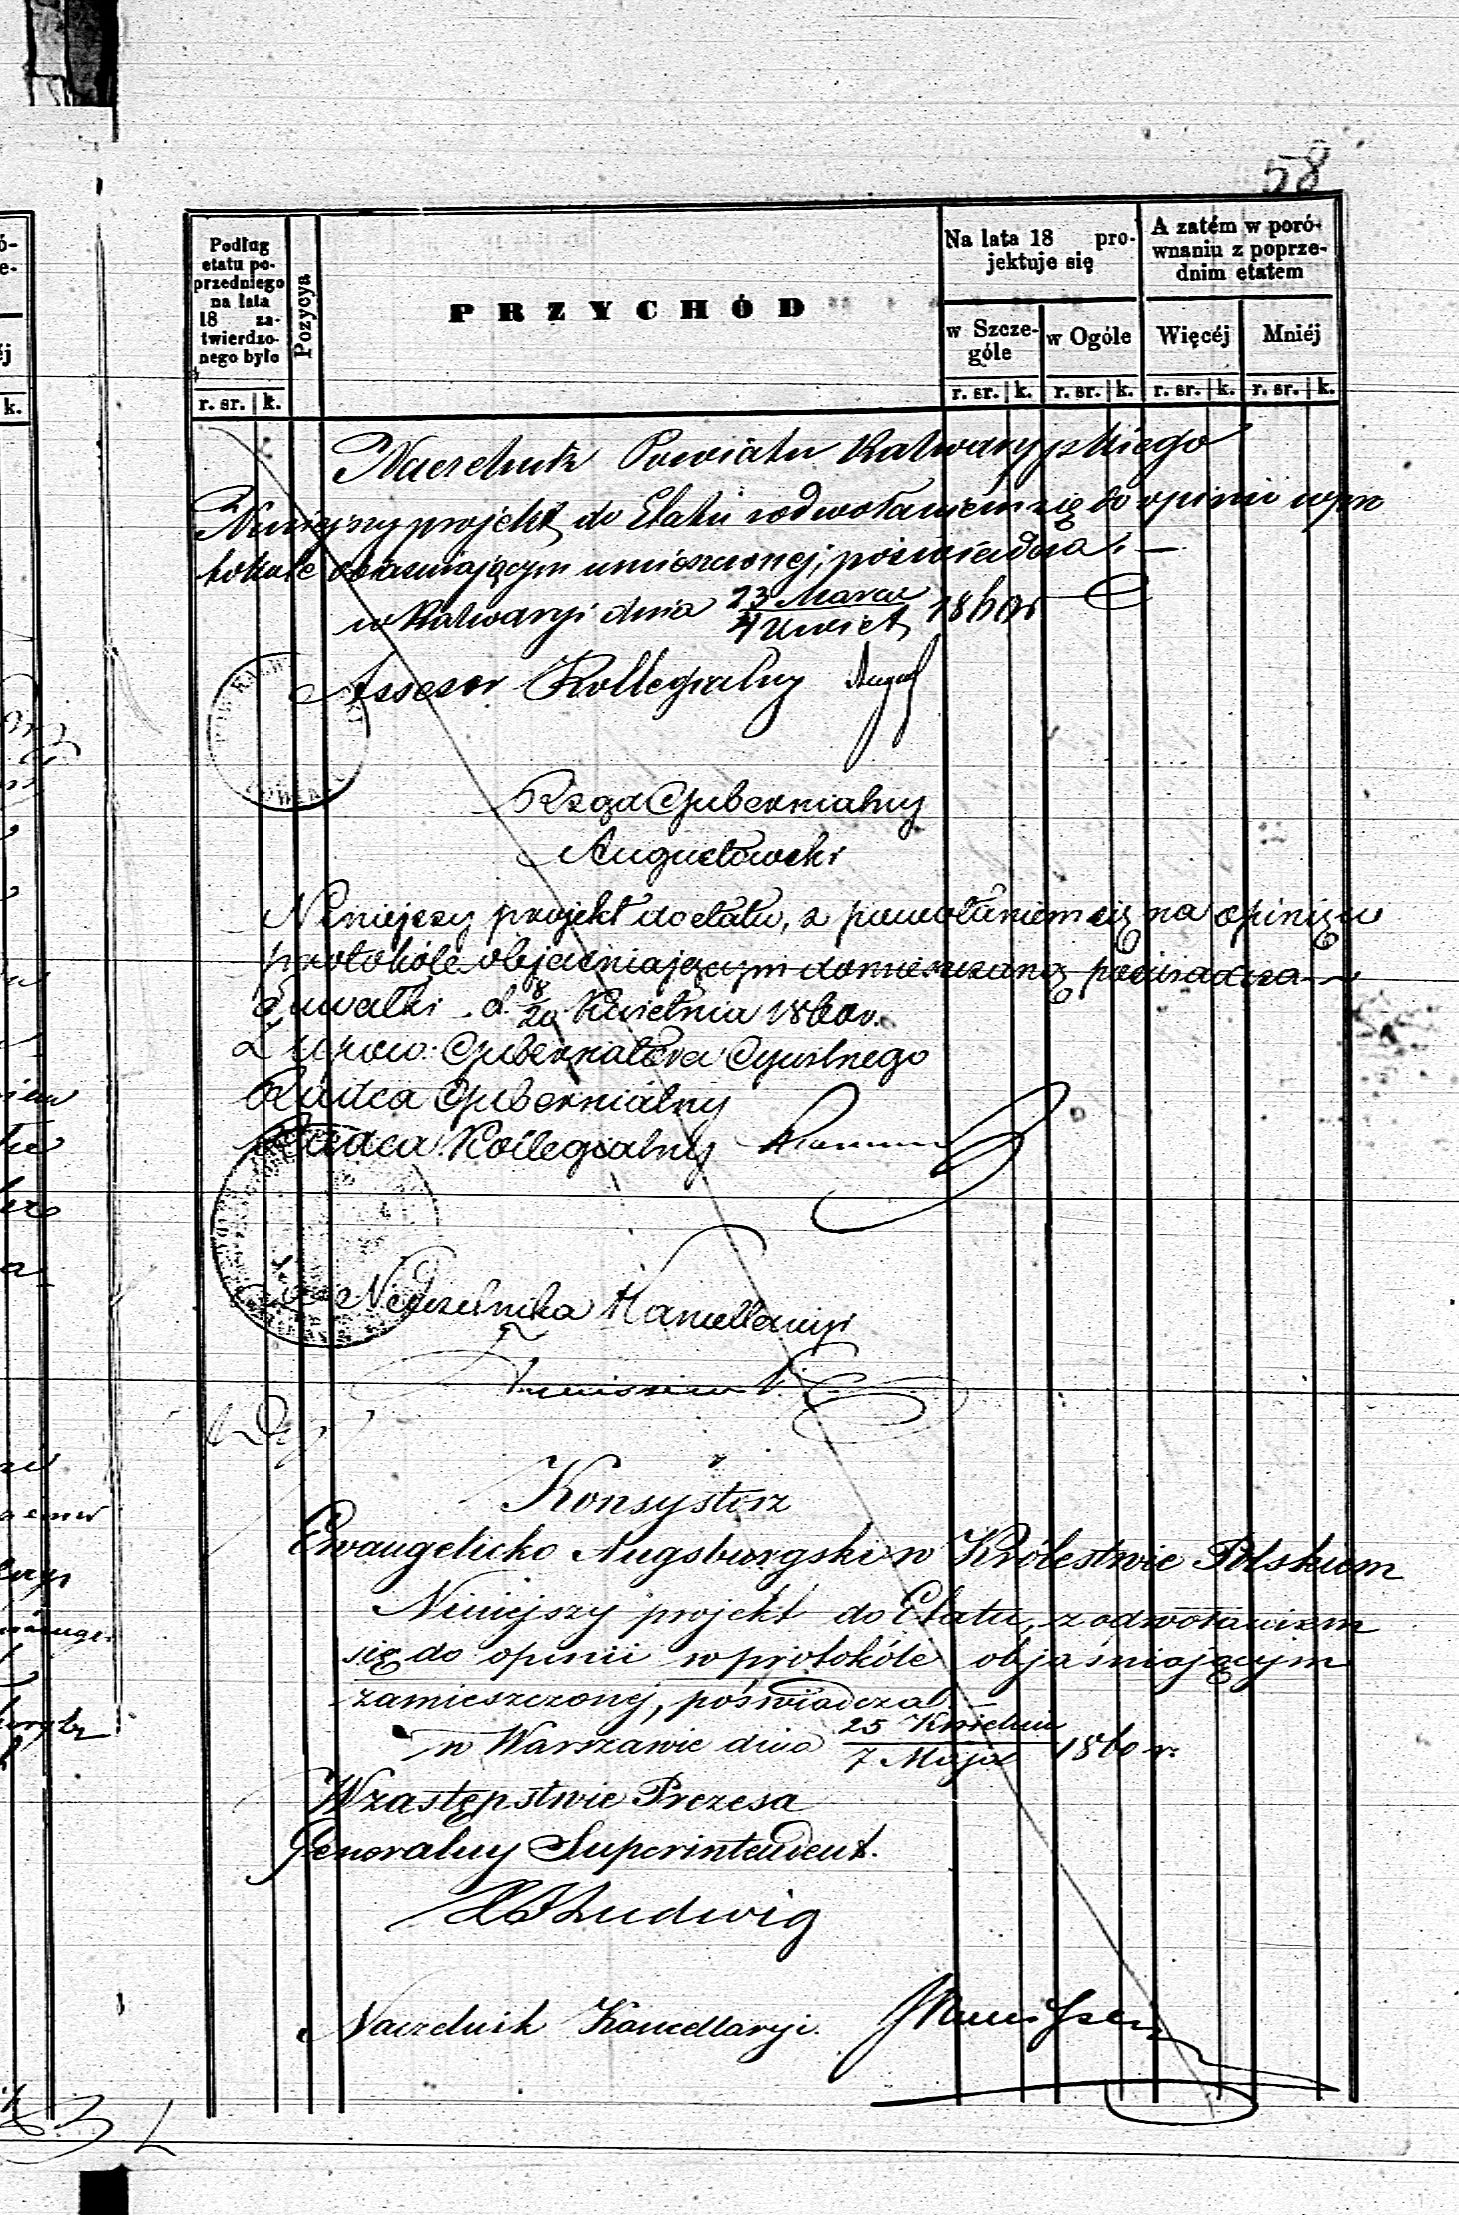 58
Podług
etatu po-
przedniego
na lata
18 za-
twierdzo-
nego było
r. sr. | k.
Pozycya
PRZYCHÓD
Na lata 18 pro-
jektuje się
w Szcze-
góle
w Ogóle
r. sr. | k. r. sr. | k.
A zatém w poró-
wnaniu z poprze-
dnim etatem
Więcéj
Mniéj
r. sr. | k. r. sr. | k.
Naczelnik Powiatu Kalwaryjskiego
Niniejszy projekt do Etatu z odwołaniem się do opinii w pro
tokule objaśniającym umieszczonej, poświadcza. —
w Kalwaryi dnia 23 Marca / 4 Kwiet 1860 r
Assesor Kollegialny
Rząd Gubernialny
Augustowski
Niniejszy projekt do etatu, z powołaniem się na opinię w
protokóle objaśniającym domieszczoną poświadcza
Suwałki d. 8/20 Kwietnia 1860 r.
Z upow: Gubernatora Cywilnego
Radca Gubernialny
Radca Kollegialny
Naczelnika Kancellaryi
Konsystorz
Ewangelicko Augsburgski w Królestwie Polskiem
Niniejszy projekt do Etatu, z odwołaniem
się do opinii w protokóle objaśniającym
zamieszczonej, poświadcza.
w Warszawie dnia 25 Kwietnia / 7 Maja 1860 r.
W zastępstwie Prezesa
Generalny Superintendent.
Ludwig
Naczelnik Kancellaryi.